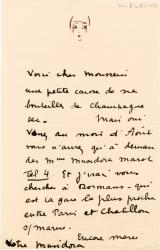 Voici cher Monsieur
une petite caisse de six
bouteilles de champagne
sec. Mais oui
Venez au mois d'Août
vous n'aurez qu'à deman
der Mme Musidora
Tél 4. Et j'irai vous
chercher à Dormans - qui
est la gare la plus proche
entre Paris et Chatillon
s/ marne.
Encore merci
Votre Musidora